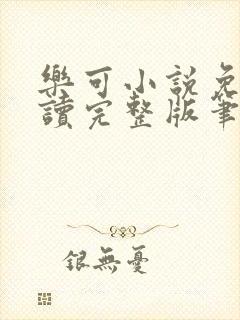 樂可小說免
讀完整版筆
銀無憂